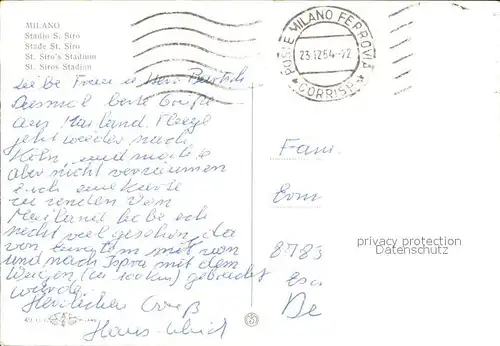 MILANO
Stadio S. Siro
Stade St. Siro
St. Siro's Stadium
St. Siros Stadion
POSTE MILANO FERROVIA
23.12.64-22
CORRISP.
Liebe Frau u Herr
Diesmal beste Grüße
aus Mailand. Fliege
jetzt wieder nach
Köln und möchte
aber nicht versäumen
Euch eine Karte
zu senden. Von
Mailand habe ich
nicht viel gesehen, da
von
und nach Ispra mit dem
Wagen (ca 100 km) gebracht
werde.
Herzlichen Gruß
Hans-Ulrich
Fam.
8783
De
privacy protection
Datenschutz